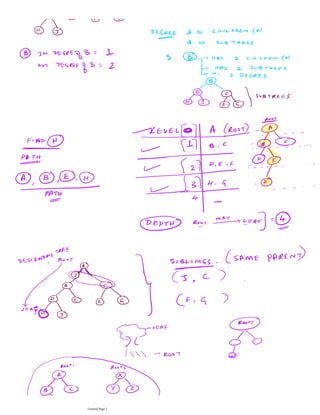 H J
DEGREE # OF CHILDREN (N)
# OF SUBTREES
B IN DEGREE OF B = 1
OUT DEGREE OF B = 2
B HAS 2 CHILDREN
HAS 2 SUBTREES
2 DEGREE
B
D C
H J F G
SUBTREES
LEVEL 0 A (ROOT)
1 B, C
2 D, E, F
3 H, G
4 —
ROOT
A
B C
D E
FIND H
PATH
A, B, E, H
PATH
DEPTH ROOT MAX LEAF = 4
TREE
ROOT
SIBLINGS. (SAME PARENT)
(J, C)
(F, G)
LEAF
ROOT
ROOT
ROOT1 ROOT2
A X
B C Y Z
General Page 2